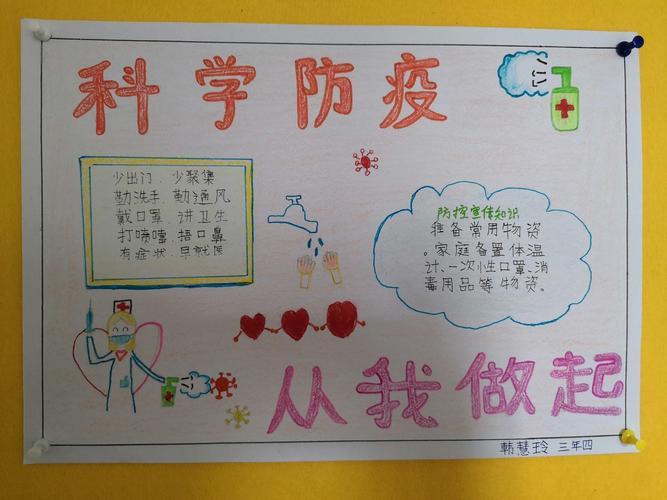 科学防疫
少出门、少聚集
勤洗手、勤通风
戴口罩、讲卫生
打喷嚏、捂口鼻
有症状、早就医
防控宣传知识
准备常用物资
。家庭备置体温
计、一次性口罩、消
毒用品等物资。
从我做起
韩慧玲 三年四